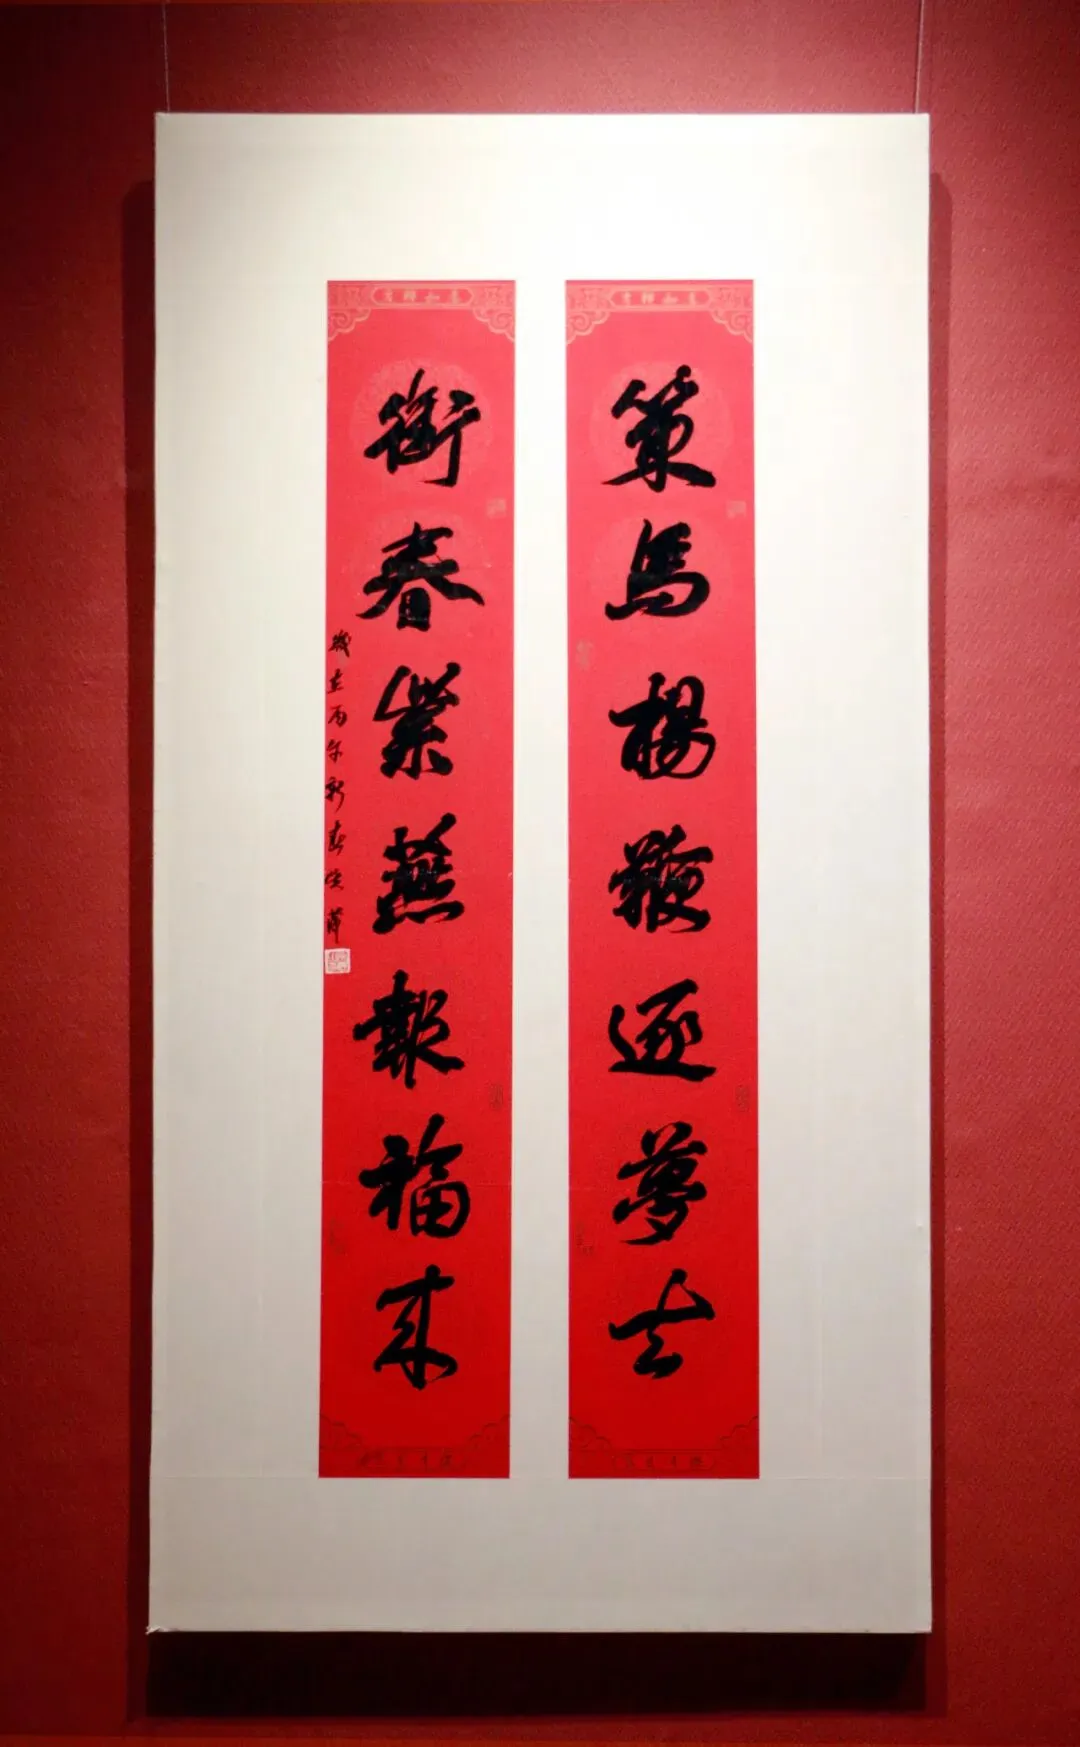 策馬揚鞭逐夢去
銜春紫燕報福來
歲在丙午新春